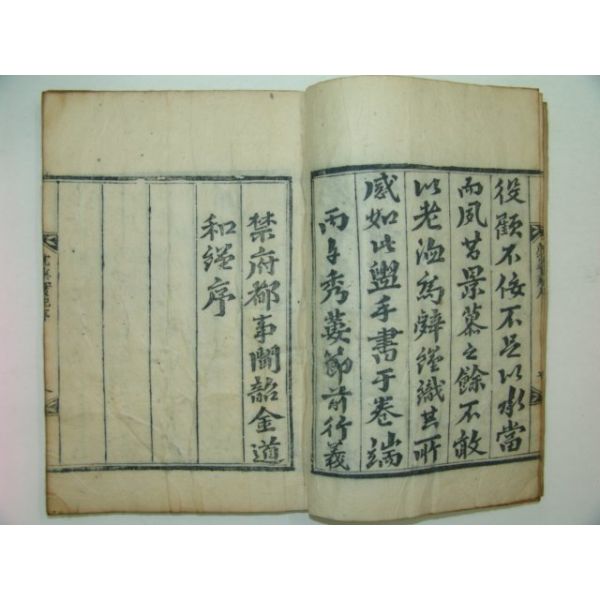 役顧不佞不足以水當
而夙昔景慕之餘不敢
以老洫爲辭繼識其所
感如此盥手書于卷端
丙子秀葽節前行義
禁府都事聞韶金道
和謹序